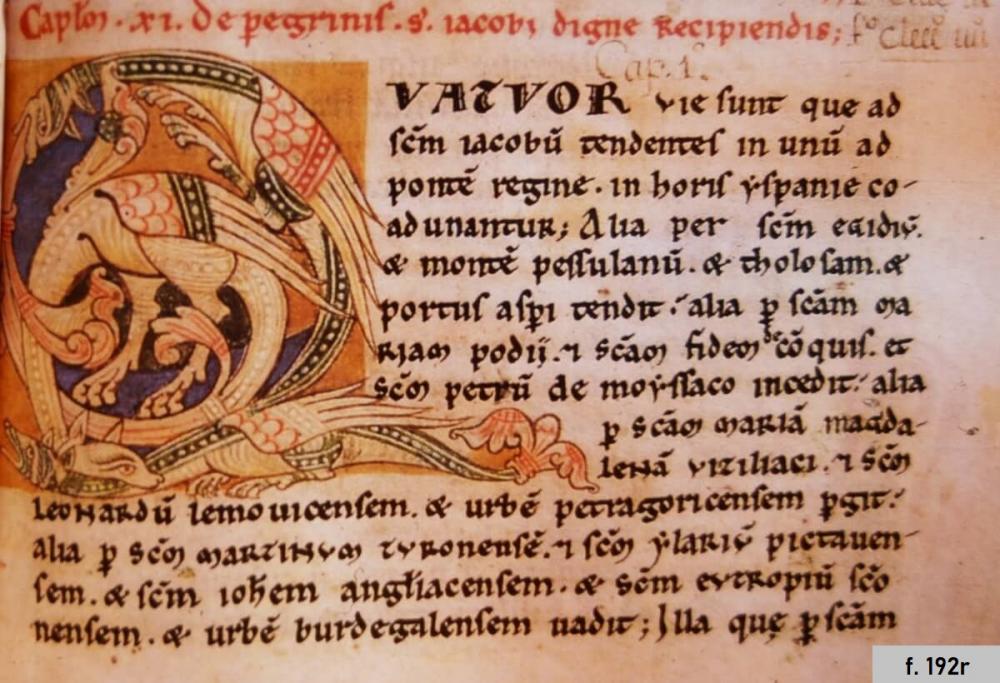 Capłm · xi. De pegrinis · s. iacobi digne Recipiendis;
Cap. 1.
QVATVOR vie sunt que ad
scm̄ iacobū tendentes in unū ad
pontē regine. in horis yspanie co-
adunantur; Alia per scm̄ egidiū.
& montē pessulanū. & tholosam. &
portus aspi tendit. alia p scām ma
riam podij. ⁊ scām fidem de cōquis. et
scm̄ petrū de moyssaco incedit. alia
p scām mariā magda-
lenā viziliaci. ⁊ scm̄
leonardū lemouicensem. & urbē petragoricensem pgit.
alia p scm̄ martinum turonensē. ⁊ scm̄ ylariū pictauen-
sem. & scm̄ ioħem angliacensem. & scm̄ eutropiū scō
nensem. & urbē burdegalensem uadit; Illa quę p scām
f. 192r